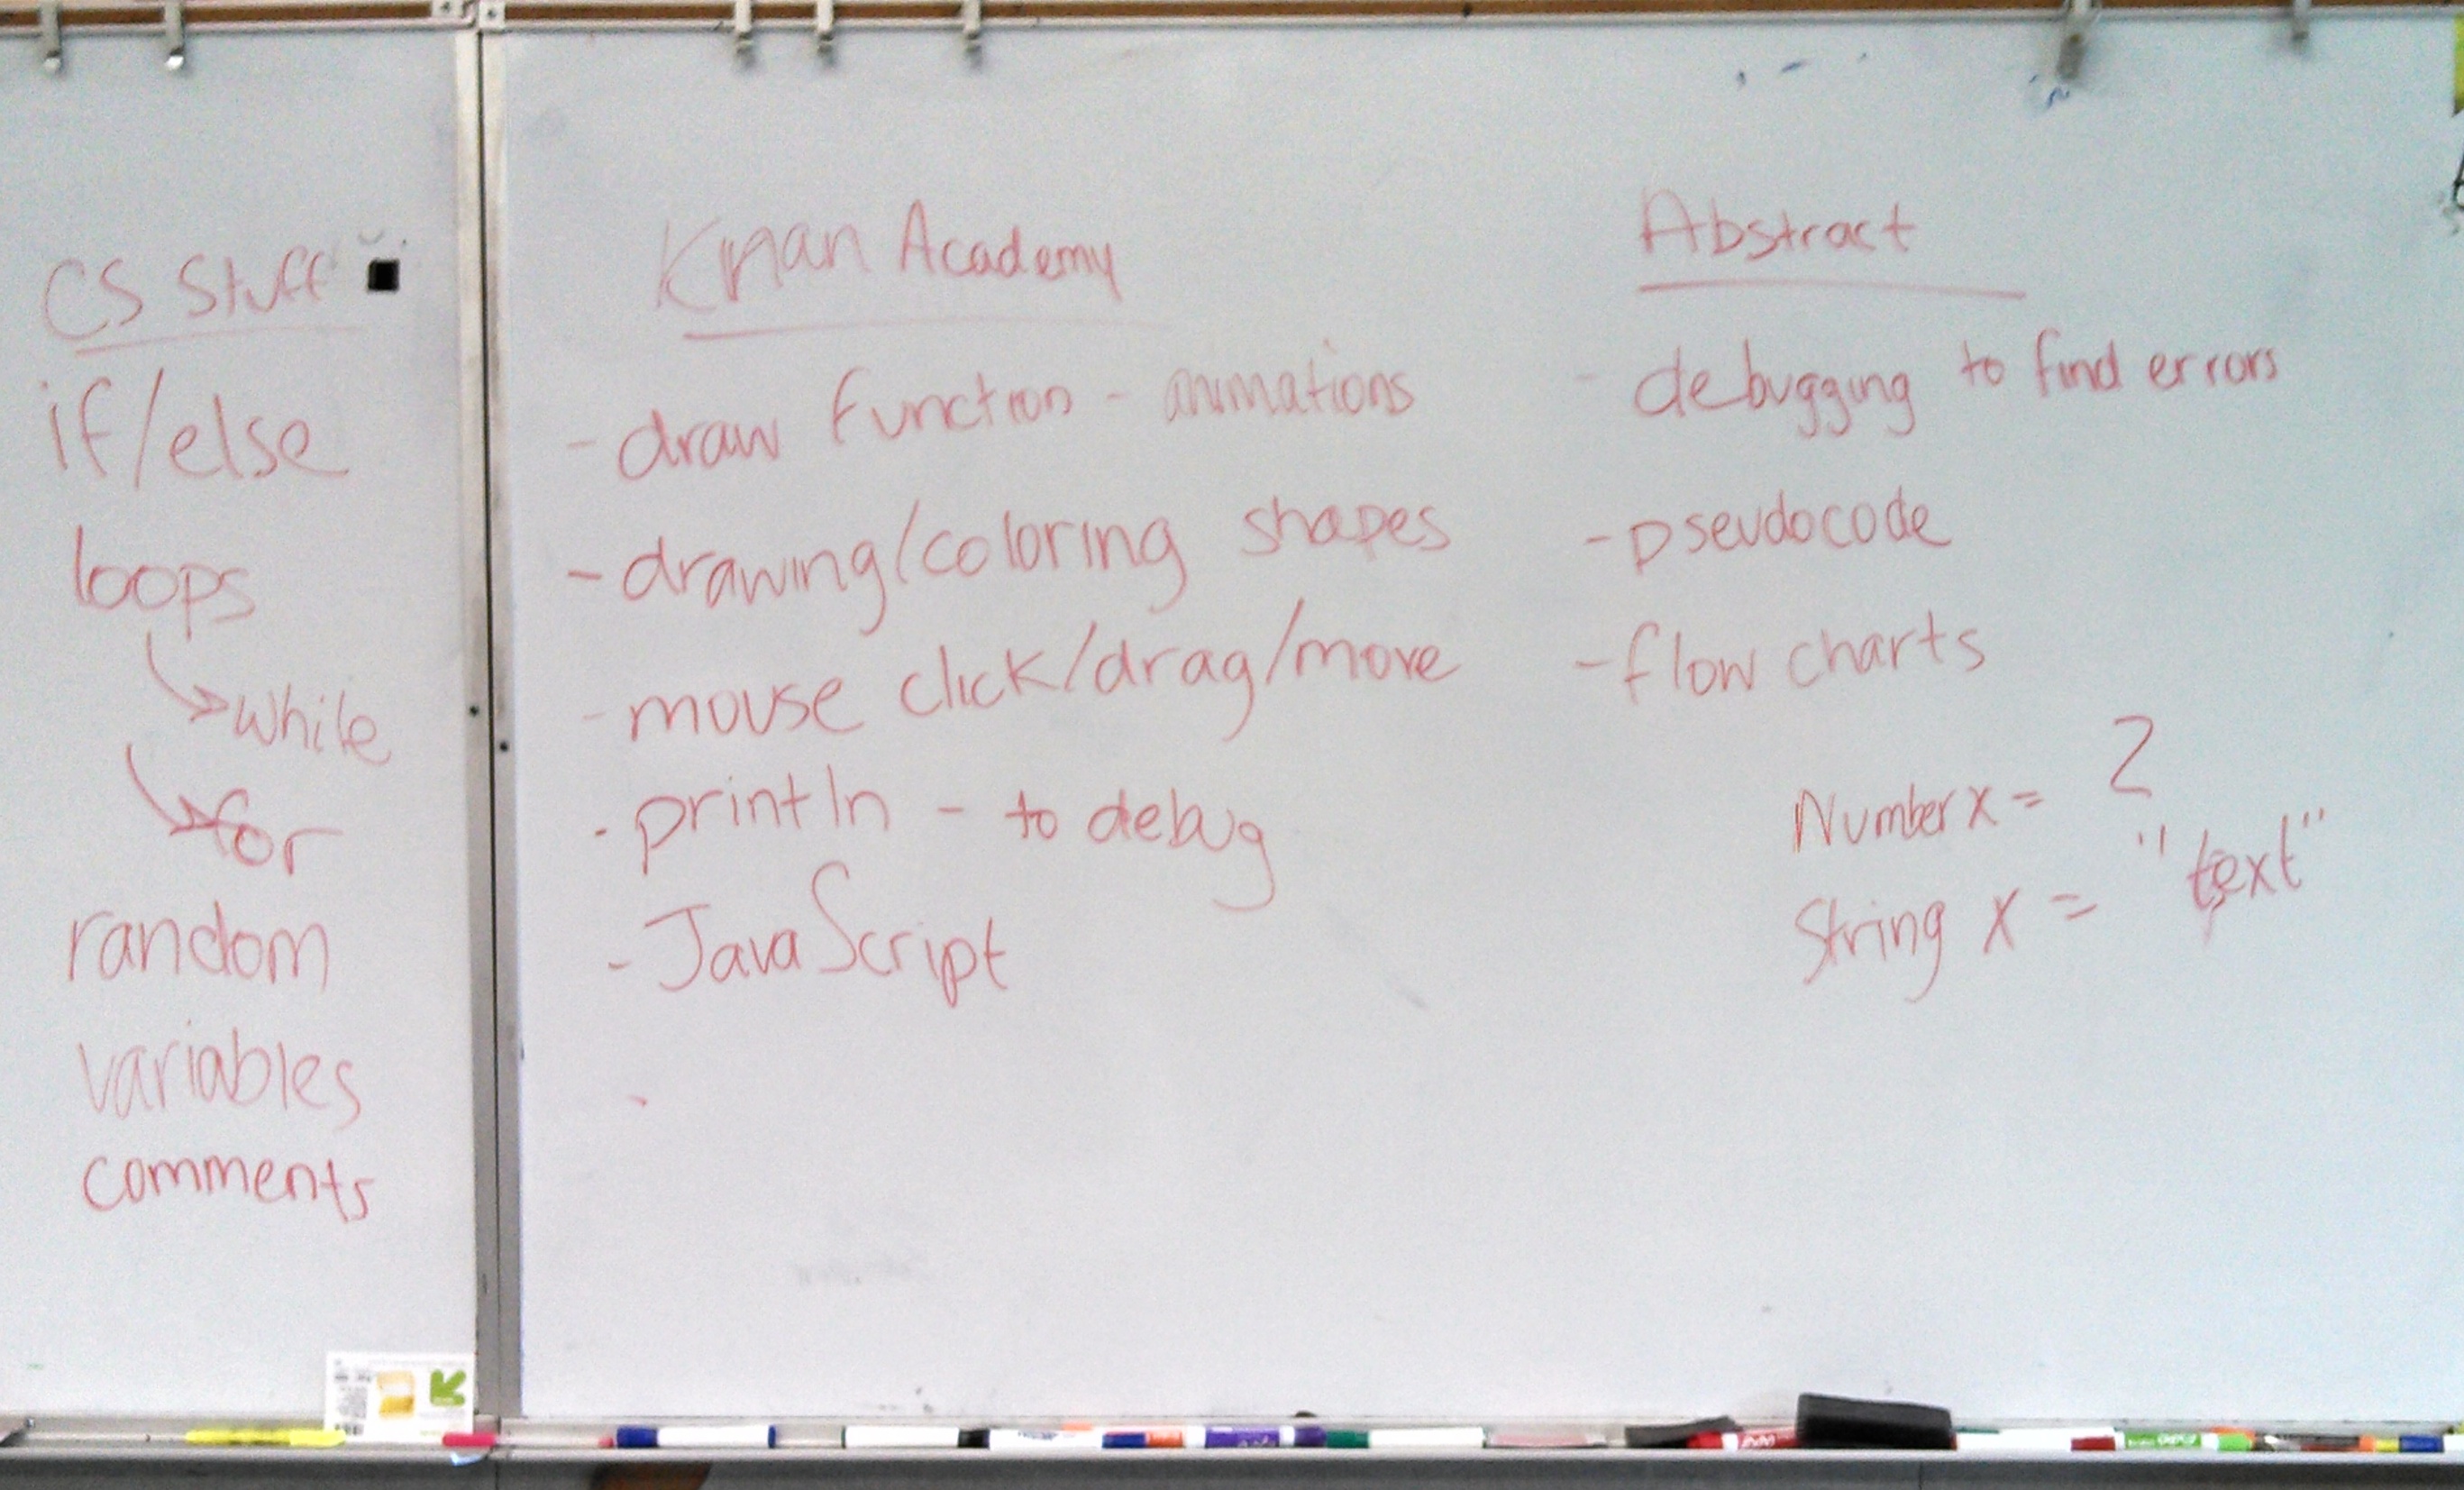 CS Stuff
if/else
loops
while
for
random
variables
comments
Khan Academy
- draw function - animations
- drawing/coloring shapes
- mouse click/drag/move
- println - to debug
- JavaScript
-
Abstract
- debugging to find errors
- pseudocode
- flow charts
Number x = 2
String x = "text"